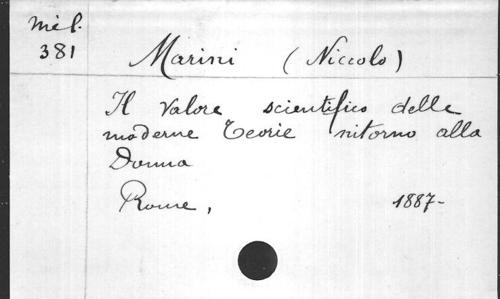 Mél.
381
Marini (Niccolo)
Il valore scientifico delle
moderne Teorie intorno alla
Donna
Rome, 1887-